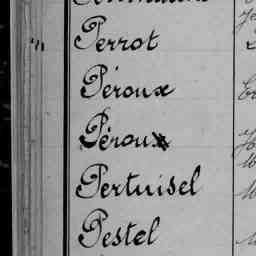 Perrot
Péroux
Péroux
Pertuisel
Pestel